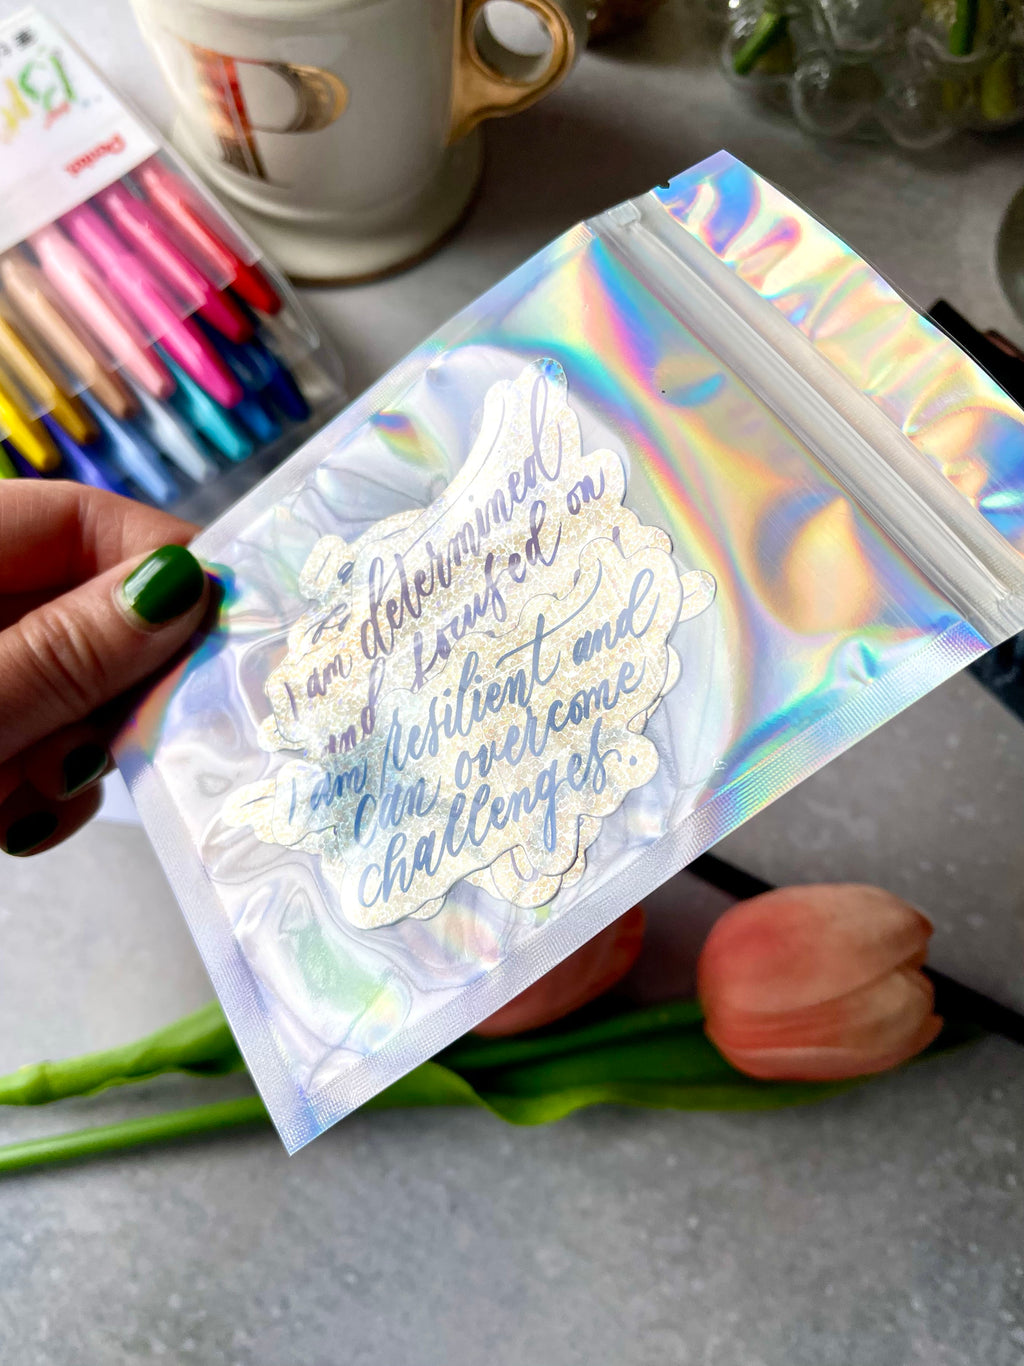 Pentel
I am determined
and focused on
I am resilient and
can overcome
challenges.